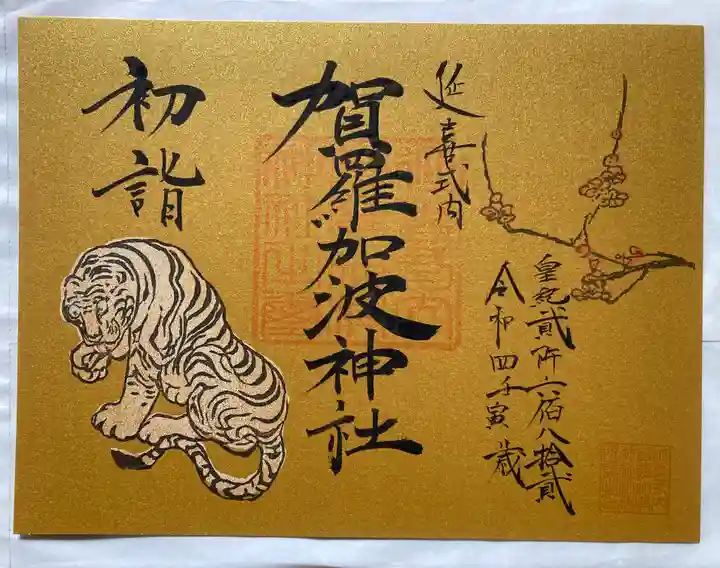 延喜式内
皇紀貳阡六佰八拾貳
令和四壬寅歳
賀羅加波神社
初詣